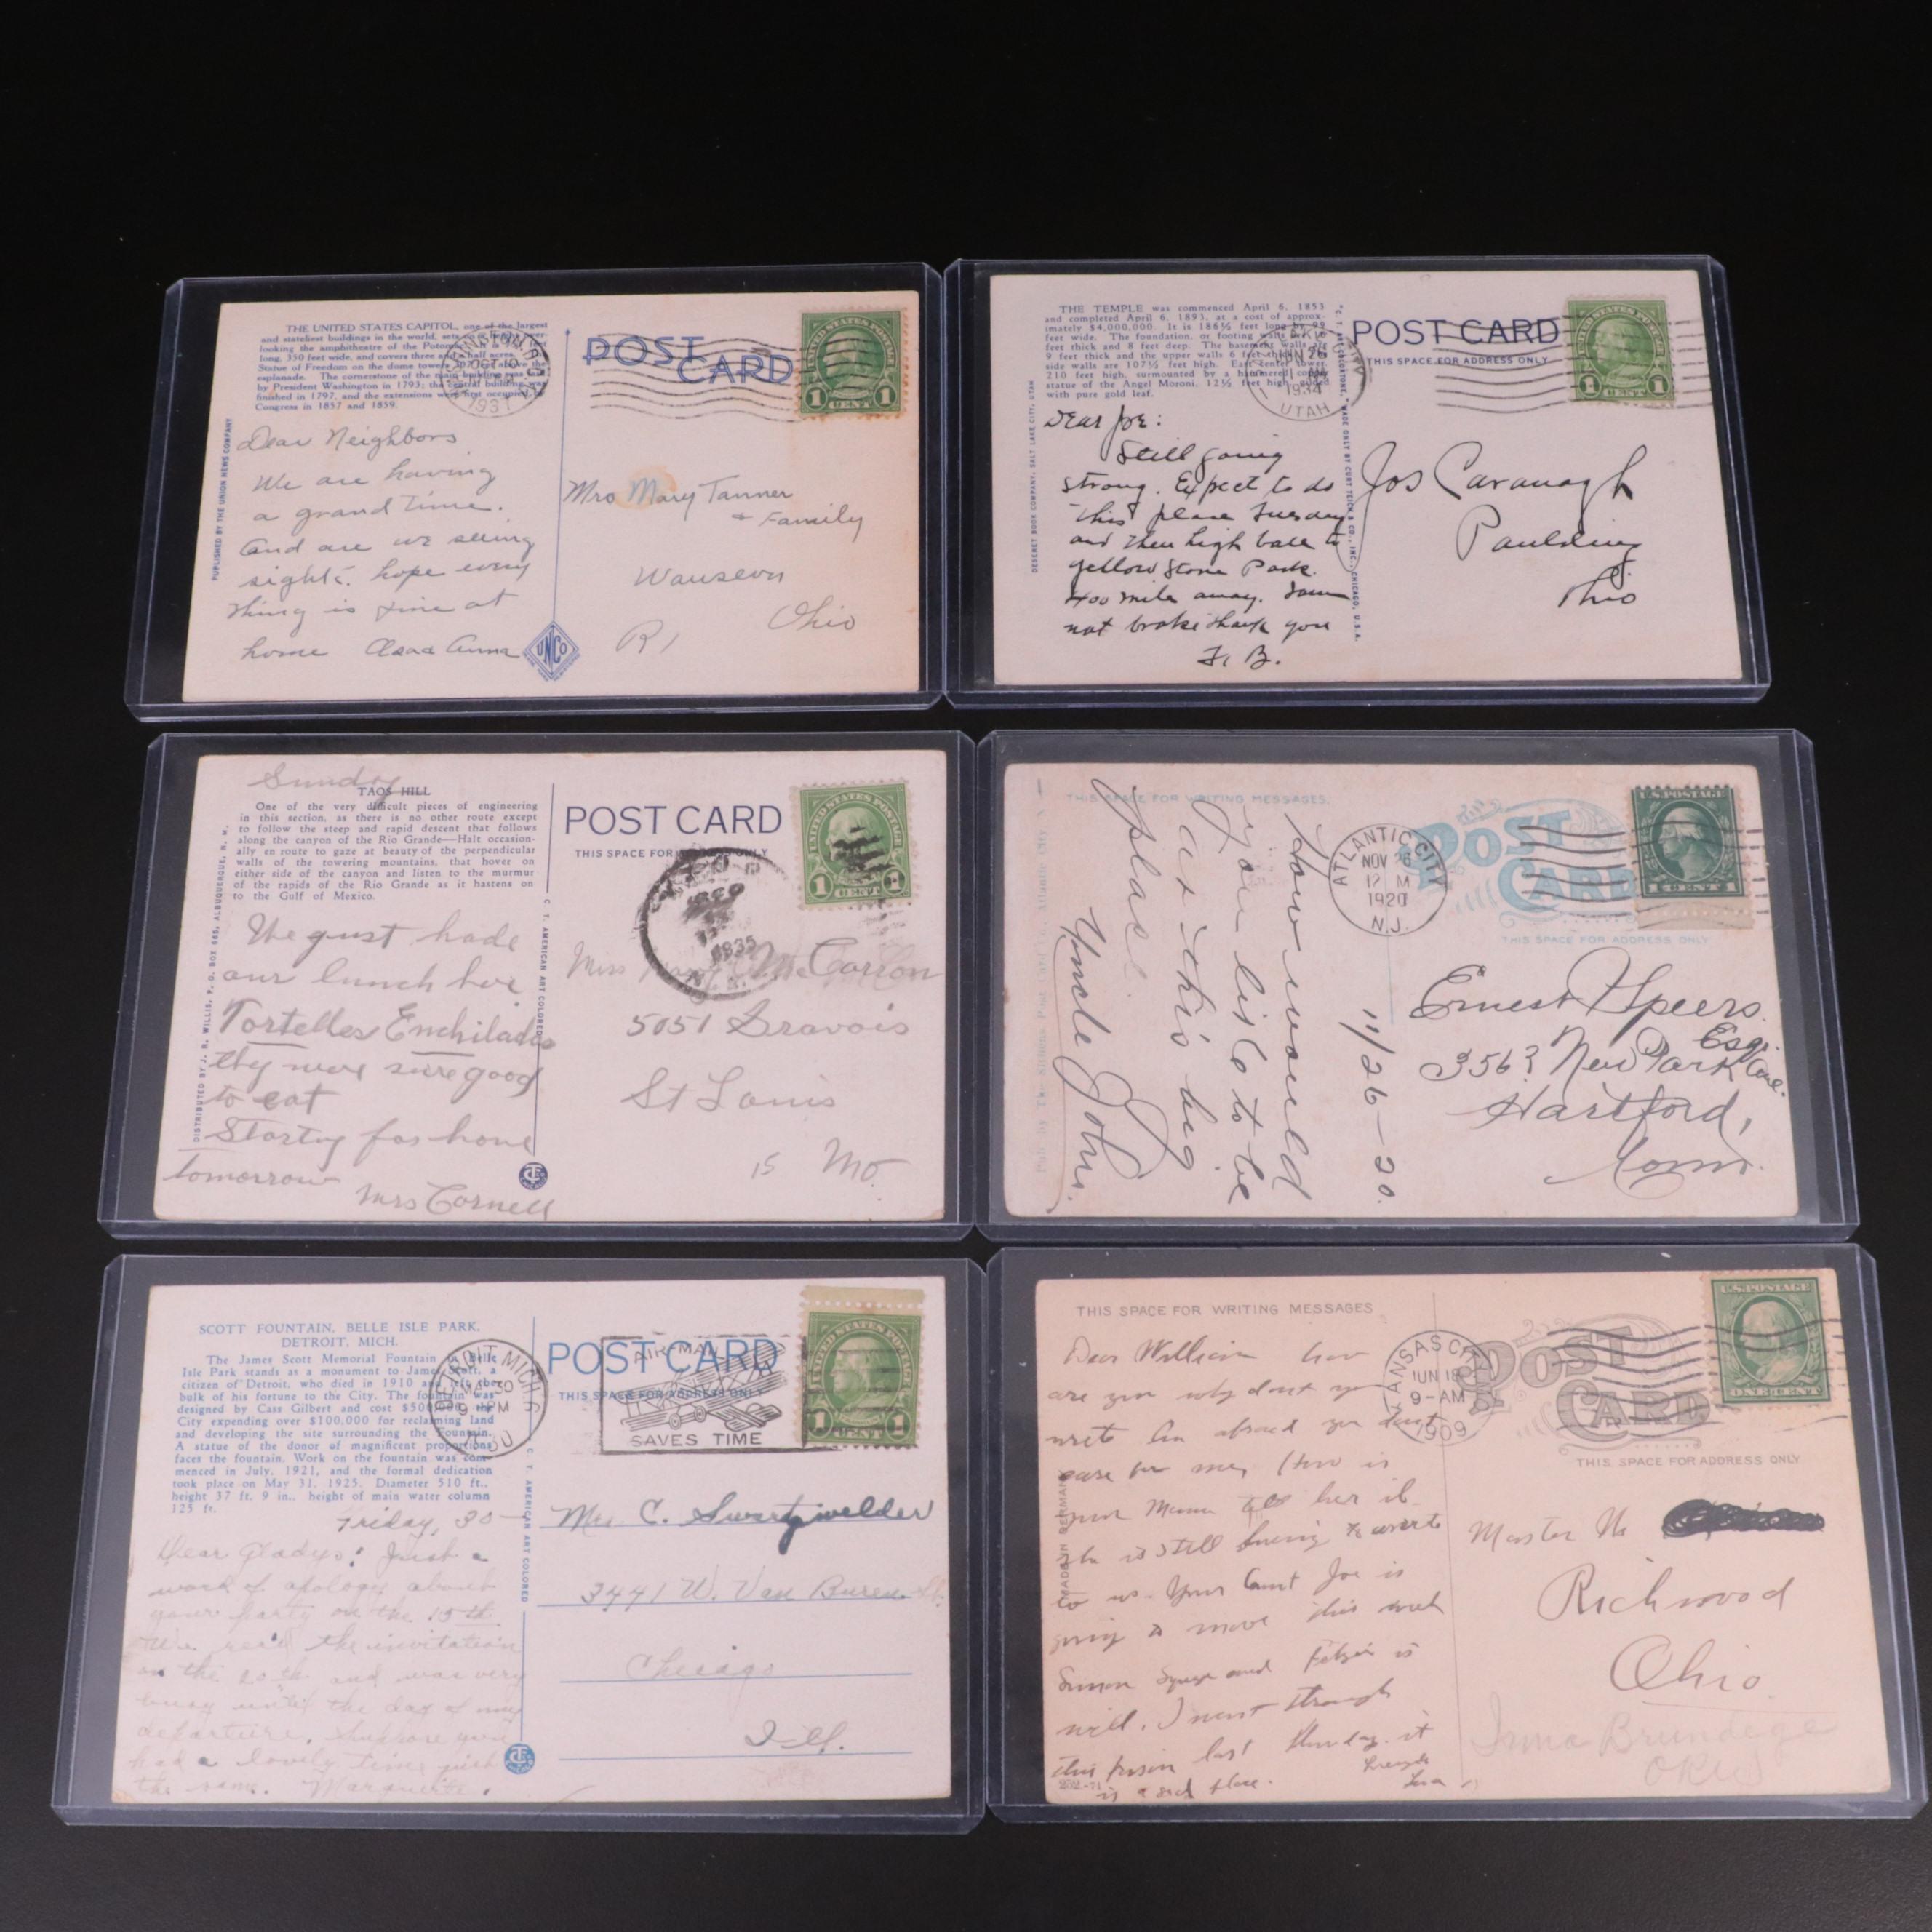 THE UNITED STATES CAPITOL, one of the largest
and stateliest buildings in the world, sets on a
looking the amphitheatre of the Potomac
long, 350 feet wide, and covers three and a half acres.
Statue of Freedom on the dome towers above the
esplanade. The cornerstone of the main building was
by President Washington in 1793; the central building was
finished in 1797, and the extensions were first occupied by
Congress in 1857 and 1859.
PUBLISHED BY THE UNION NEWS COMPANY
POST
CARD
WASHINGTON, D.C.
OCT 10
1931
UNITED STATES POSTAGE
1 CENT 1
Dear Neighbors
We are having
a grand time.
and are we seeing
sights. hope every
thing is fine at
home Asa Anna
UNCO
Mrs Mary Tanner
+ Family
Wauseon
Ohio
R1
THE TEMPLE was commenced April 6, 1853
and completed April 6, 1893, at a cost of approx-
imately $4,000,000. It is 186½ feet long by 99
feet wide. The foundation, or footing walls are
feet thick and 8 feet deep. The basement walls are
9 feet thick and the upper walls 6 feet thick
side walls are 107½ feet high. East center tower
210 feet high, surmounted by a hammered copper
statue of the Angel Moroni, 12½ feet high, gilded
with pure gold leaf.
DESERET BOOK COMPANY, SALT LAKE CITY, UTAH
MADE ONLY BY CURT TEICH & CO., INC., CHICAGO, U.S.A.
POST CARD
THIS SPACE FOR ADDRESS ONLY
1934
UTAH
UNITED STATES POSTAGE
1 CENT 1
Dear Joe:
Still going
strong. Expect to do
this place Tuesday
and then high ball to
yellow Stone Park.
400 mile away.
not broke thank you
F. B.
Jos Cavanagh
Paulding
Ohio
Sunday
TAOS HILL
One of the very difficult pieces of engineering
in this section, as there is no other route except
to follow the steep and rapid descent that follows
along the canyon of the Rio Grande—Halt occasion-
ally en route to gaze at beauty of the perpendicular
walls of the towering mountains, that hover on
either side of the canyon and listen to the murmur
of the rapids of the Rio Grande as it hastens on
to the Gulf of Mexico.
DISTRIBUTED BY J. R. WILLIS, P. O. BOX 665, ALBUQUERQUE, N. M.
C. T. AMERICAN ART COLORED
POST CARD
THIS SPACE FOR ONLY
1935
UNITED STATES POSTAGE
1 CENT
We gust hade
our lunch her
Tortelles Enchilades
they were sure good
to eat
Starting for home
tomorrow
Mrs Cornell
Miss Mary McCarron
5051 Gravois
St Louis
15 Mo.
THIS SPACE FOR WRITING MESSAGES.
POST
CARD
THIS SPACE FOR ADDRESS ONLY
ATLANTIC CITY
NOV 26
12 M
1920
N.J.
U.S. POSTAGE
1 CENT 1
11/26-20.
How would
you like to be
at this big
place
Uncle John.
Ernest Speers
Esq.
3563 New Park Ave.
Hartford,
Conn.
SCOTT FOUNTAIN, BELLE ISLE PARK,
DETROIT, MICH.
The James Scott Memorial Fountain in Belle
Isle Park stands as a monument to James Scott, a
citizen of Detroit, who died in 1910 and left the
bulk of his fortune to the City. The fountain was
designed by Cass Gilbert and cost $500,000, the
City expending over $100,000 for reclaiming land
and developing the site surrounding the Fountain.
A statue of the donor of magnificent proportions
faces the fountain. Work on the fountain was com-
menced in July, 1921, and the formal dedication
took place on May 31, 1925. Diameter 510 ft.,
height 37 ft. 9 in., height of main water column
125 ft.
C. T. AMERICAN ART COLORED
POST CARD
THIS SPACE FOR ADDRESS ONLY
DETROIT, MICH.
30
9 PM
AIR MAIL
SAVES TIME
UNITED STATES POSTAGE
1 CENT
Friday, 30—
Dear Gladys: Just a
word of apology about
your party on the 15th.
We rec'd the invitation
on the 20th and was very
busy until the day of my
departure, suppose you
had a lovely time just
the same. Marguerite.
Mrs. C. Swartzwelder
3441 W. Van Buren St.
Chicago
Ill.
THIS SPACE FOR WRITING MESSAGES
POST
CARD
THIS SPACE FOR ADDRESS ONLY
KANSAS CITY
JUN 18
9-AM
1909
U.S. POSTAGE
ONE CENT
Dear William how
are you why dont you
write Im afraid you dont
care for me, How is
your Mama tell her
she is still to write
to us. Your Aunt Joe is
going to move this week
Simon and is
well. I went through
this prison last thursday. it
is a sad place.
Master Wm
Richwood
Ohio
Irma Brundege